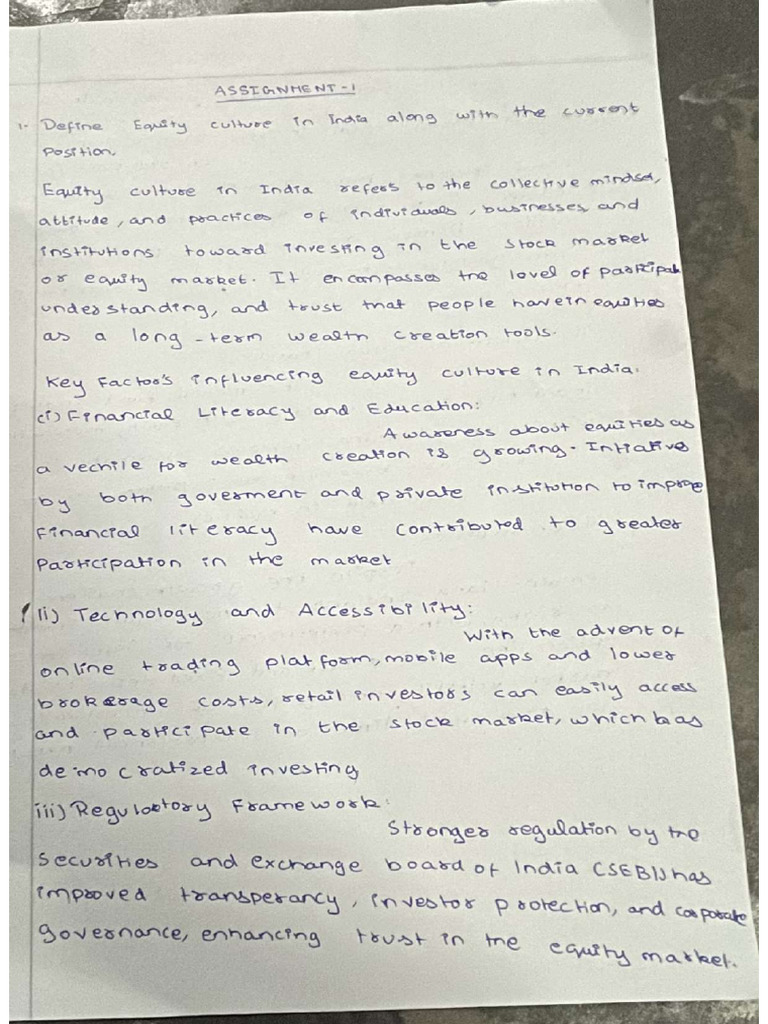 ASSIGNMENT-1
1- Define Equity culture in India along with the current
Position.
Equity culture in India refers to the collective mindset,
attitude, and practices of individuals, businesses, and
institutions toward investing in the stock market
or equity market. It encompasses the lovel of particpat
understanding, and trust that people have in equities
as a long-term wealth creation tools.
Key Factors influencing equity culture in India.
(i) Financial Literacy and Education:
Awareness about equities as
a vechile for wealth creation is growing. Intiative
by both goverment and private institution to improve
Financial literacy have contributed to greater
Participation in the market
(ii) Technology and Accessibility:
With the advent of
online trading platform, mobile apps and lower
brokerage costs, retail investors can easily access
and participate in the stock market, which has
democratized investing
iii) Regulatory Framework:
Stronger regulation by the
Securities and exchange board of India (SEBI) has
improved transperancy, investor protection, and corporate
governance, enhancing trust in the equity market.